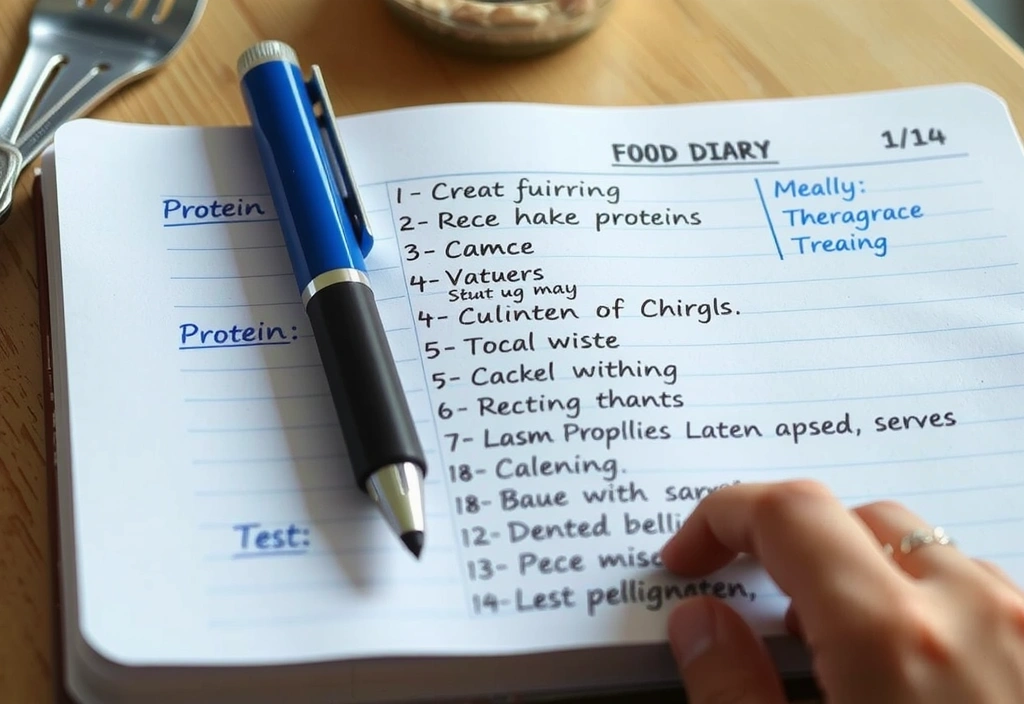 FOOD DIARY 1/14
Protein
1 - Creat fuirring
2 - Rece hake proteins
3 - Camce
4 - Vatuers
Stut ug may
4 - Culinten of Chirgls.
5 - Tocal wiste
5 - Cackel withing
6 - Recting thants
7 - Lasm Propllies Laten apsed, serves
18 - Calening.
18 - Baue with
12 - Dented
13 - Pece
14 - Lest pellignaten,
Meally:
Theragrace
Treaing
Protein:
Test: